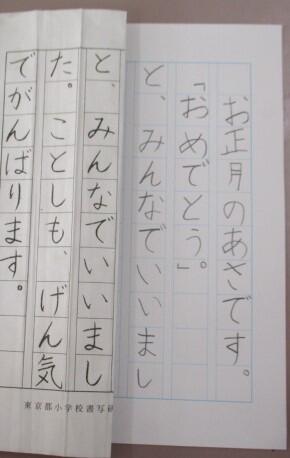 お正月のあさです。
「おめでとう」。
と、みんなでいいまし
と、みんなでいいまし
た。ことしも、げん気
でがんばります。
東京都小学校書写研